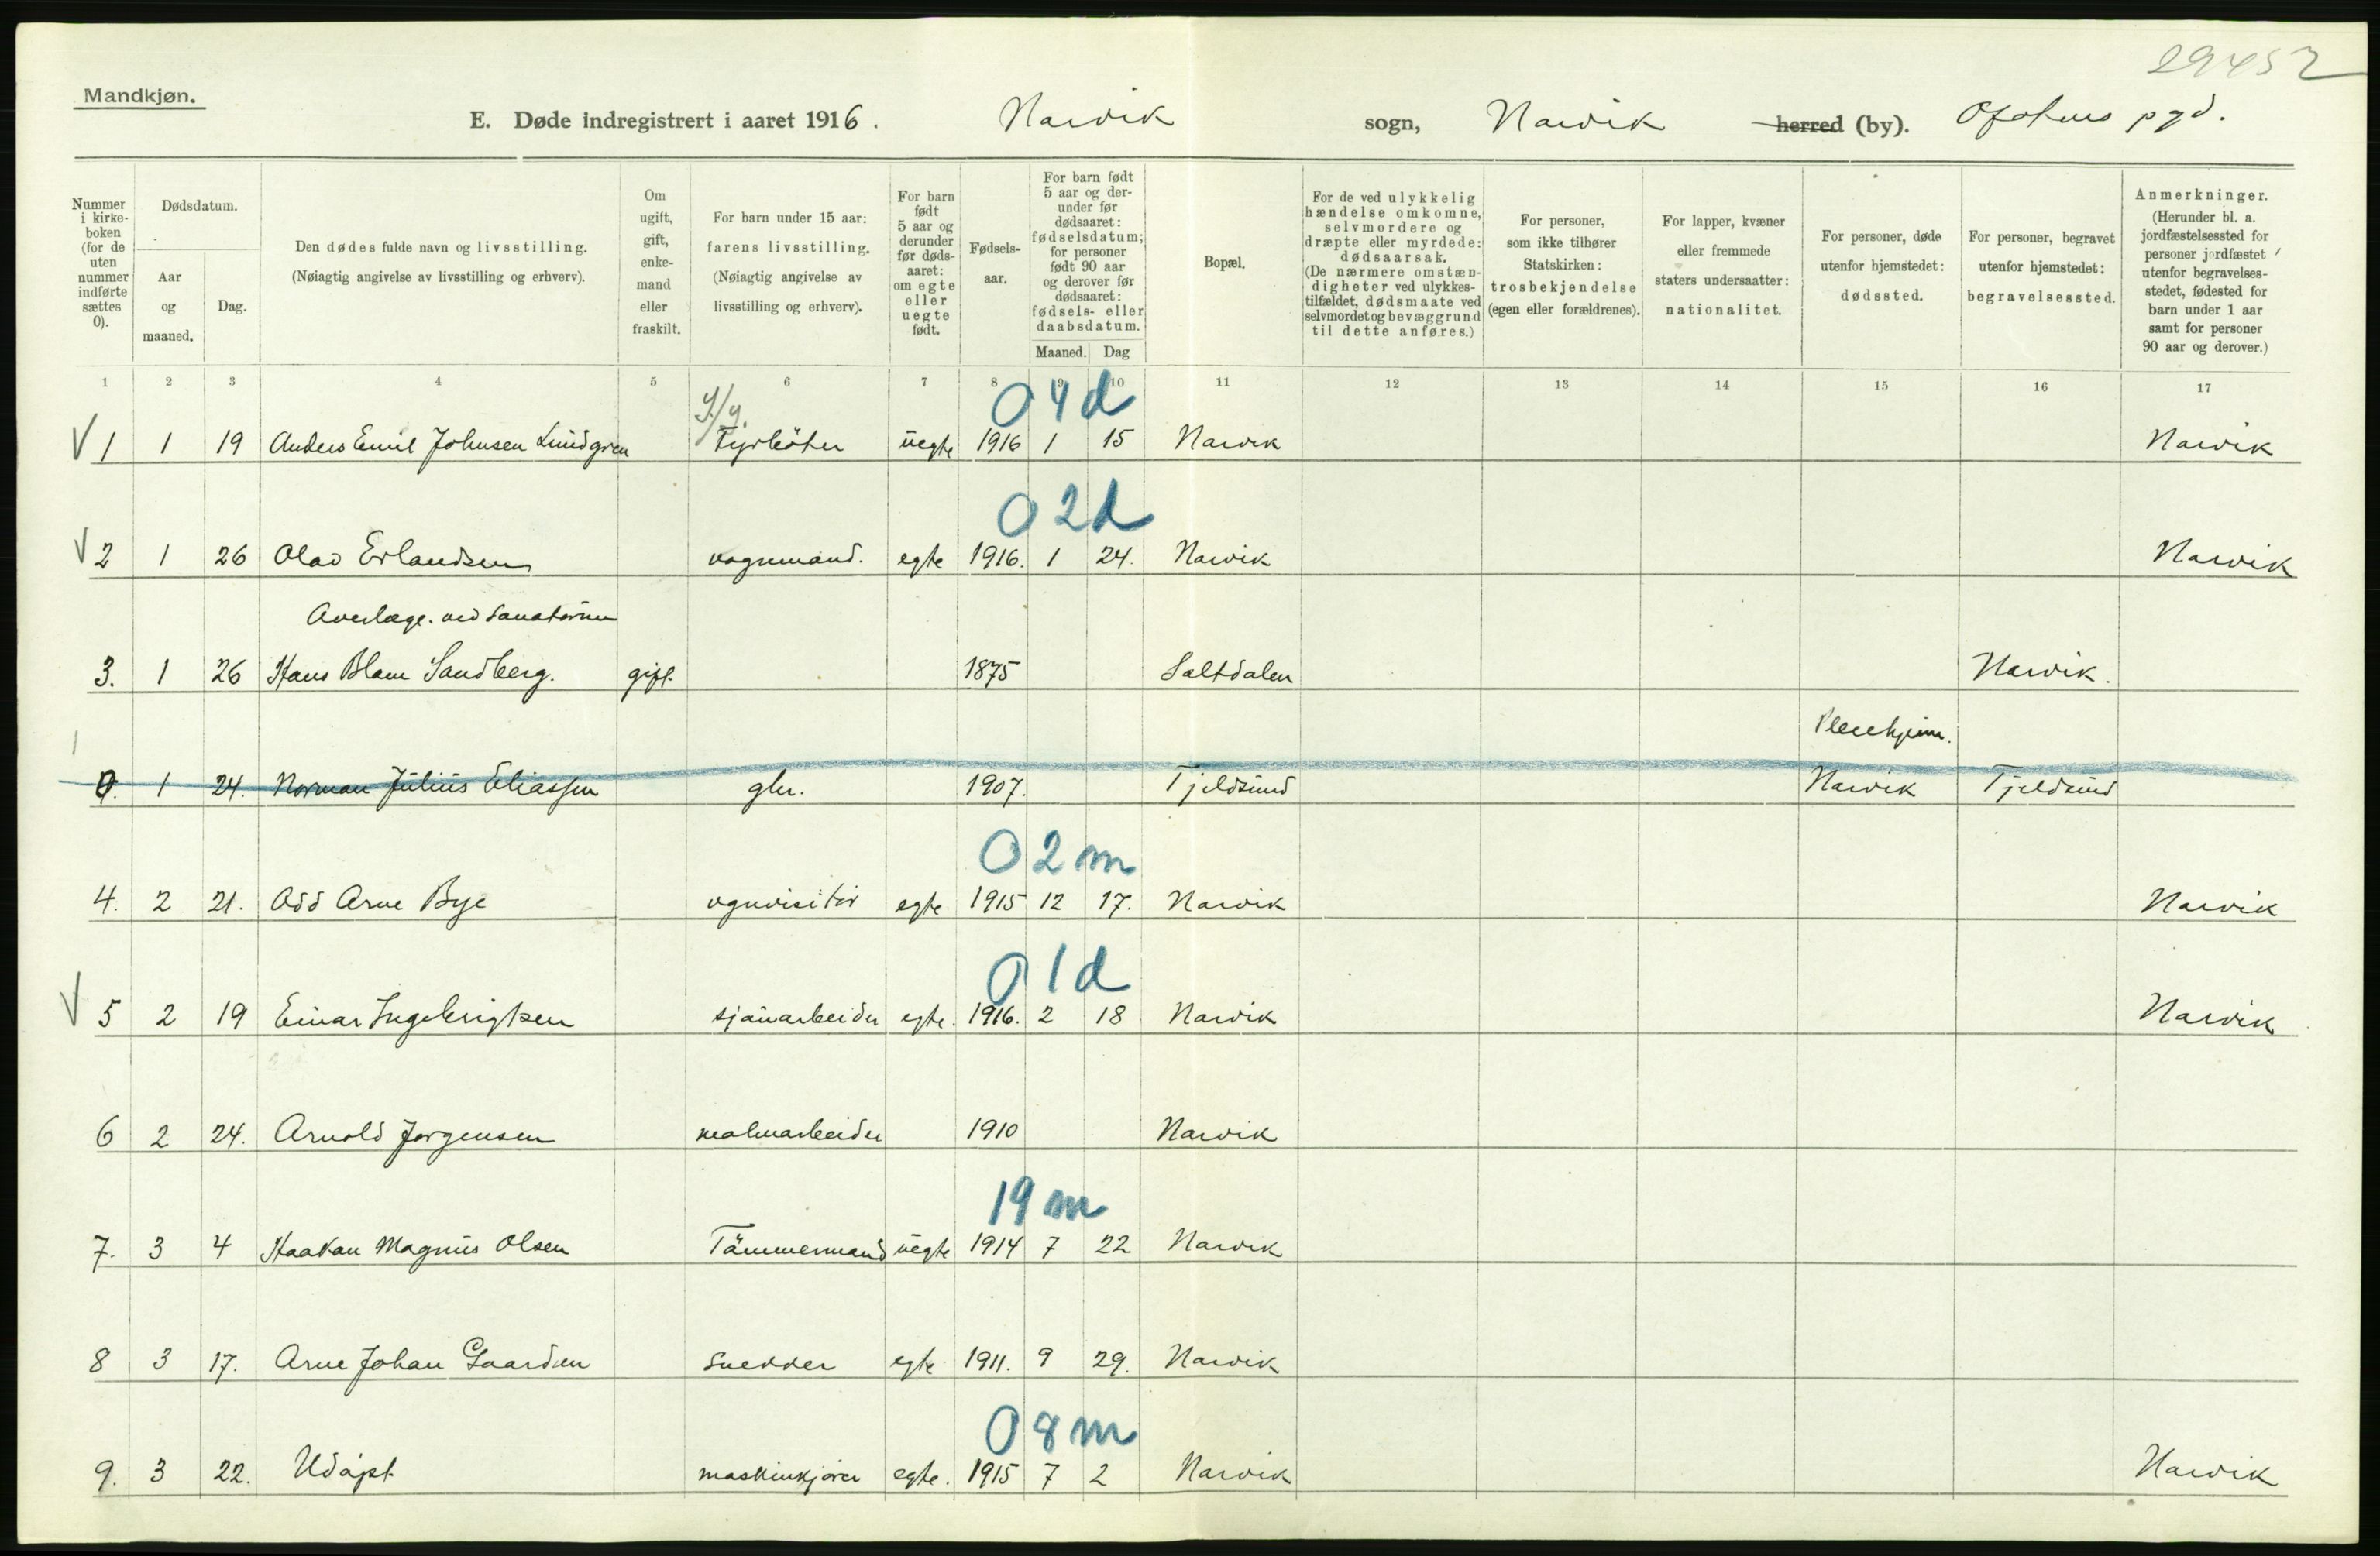 29452
Mandkjøn.
E. Døde indregistrert i aaret 1916. Narvik sogn, Narvik herred (by). Ofotens pgd.
Nummer i kirkeboken (for de uten nummer indførte sættes 0).
Dødsdatum.
Aar og maaned.
Dag.
Den dødes fulde navn og livsstilling. (Nøiagtig angivelse av livsstilling og erhverv).
Om ugift, gift, enkemand eller fraskilt.
For barn under 15 aar: farens livsstilling. (Nøiagtig angivelse av livsstilling og erhverv).
For barn født 5 aar og derunder før dødsaaret: om egte eller uegte født.
Fødselsaar.
For barn født 5 aar og derunder før dødsaaret: fødselsdatum; for personer født 90 aar og derover før dødsaaret: fødsels- eller daabsdatum.
Maaned. Dag
Bopæl.
For de ved ulykkelig hændelse omkomne, selvmordere og dræpte eller myrdede: dødsaarsak. (De nærmere omstændigheter ved ulykkestilfældet, dødsmaate ved selvmordet og bevæggrund til dette anføres.)
For personer, som ikke tilhører Statskirken: trosbekjendelse (egen eller forældrenes).
For lapper, kvæner eller fremmede staters undersaatter: nationalitet.
For personer, døde utenfor hjemstedet: dødssted.
For personer, begravet utenfor hjemstedet: begravelsessted.
Anmerkninger. (Herunder bl. a. jordfæstelsessted for personer jordfæstet utenfor begravelsesstedet, fødested for barn under 1 aar samt for personer 90 aar og derover.)
1 2 3 4 5 6 7 8 9 10 11 12 13 14 15 16 17
0 4 d
V 1 1 19 Anders Emil Johnsen Lundgren Fyrböter uegte 1916 1 15 Narvik Narvik
0 2 d
V 2 1 26 Olav Erlandsen vognmand. egte 1916. 1 24. Narvik Narvik
Overlæge. ved Sanatorium
3. 1 26 Hans Blom Sandberg. gift 1875 Saltdalen Narvik.
Pleiehjem.
0. 1 24. Norman Julius Eliassen gbr. 1907. Tjeldsund Narvik Tjeldsund
0 2 m
4. 2 21. Odd Arne Bye vognvisitør egte 1915 12 17. Narvik Narvik
0 1 d
V 5 2 19 Einar Ingebrigtsen sjauarbeider egte. 1916. 2 18 Narvik Narvik
6 2 24. Arnold Jørgensen malmarbeider 1910 Narvik
19 m
7. 3 4 Haakon Magnus Olsen Tömmermand uegte 1914 7 22 Narvik
8 3 17. Arne Johan Gaarden Snedker egte 1911. 9 29. Narvik
0 8 m
9. 3 22. Udøpt maskinkjører egte. 1915 7 2 Narvik Narvik